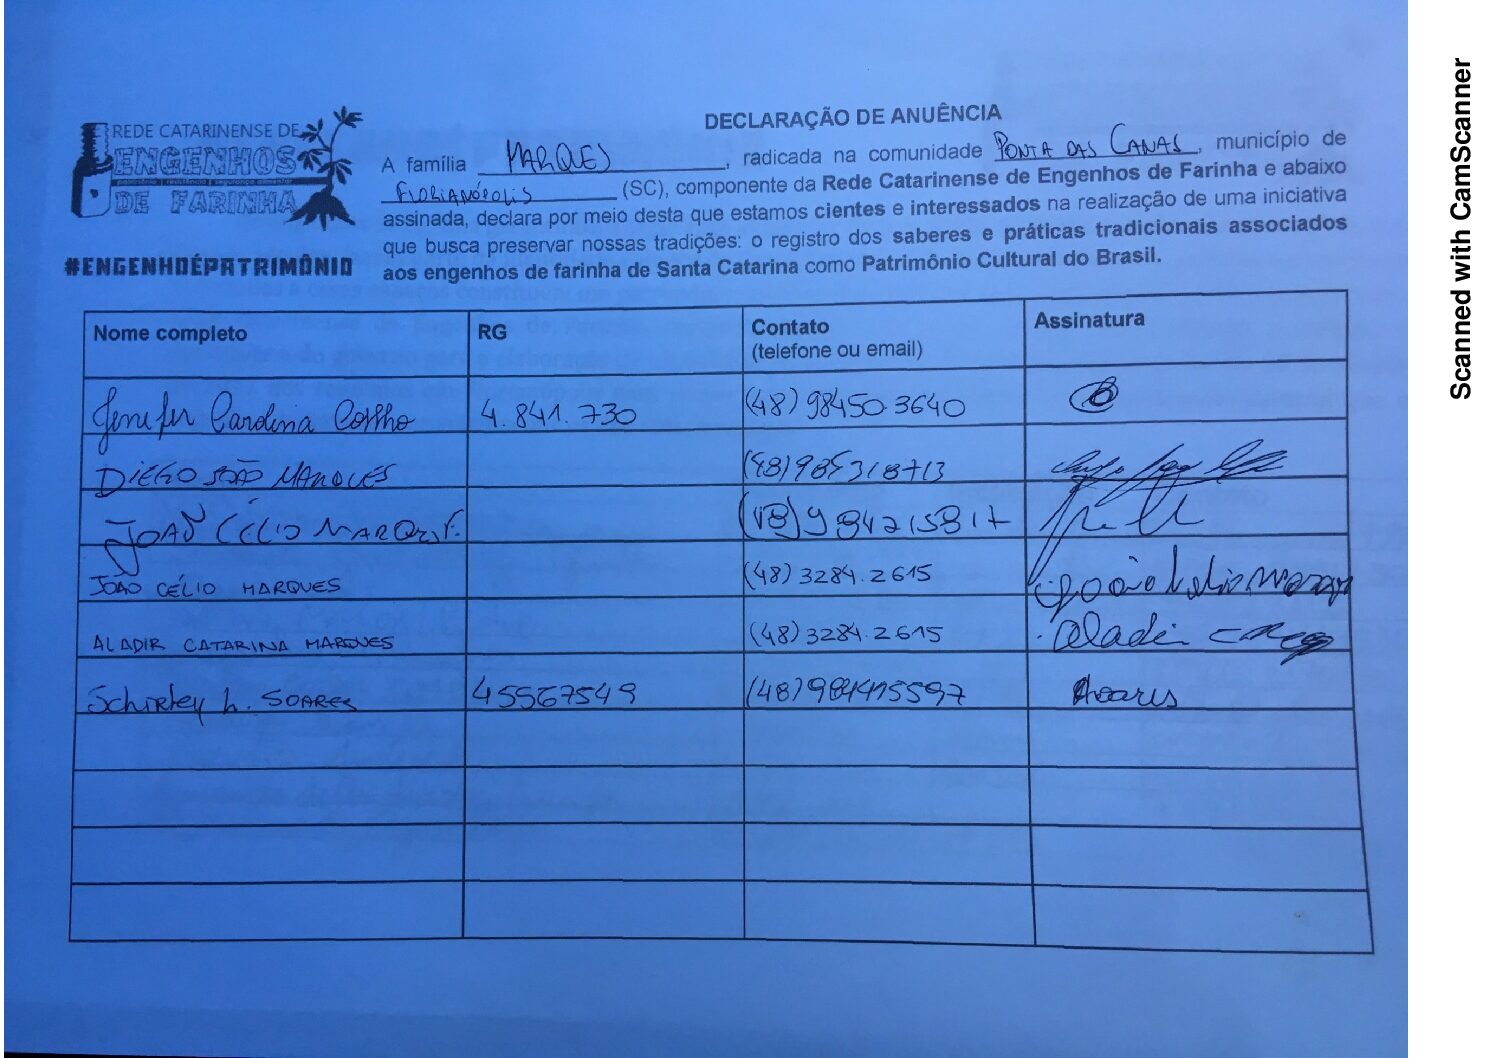 DECLARAÇÃO DE ANUÊNCIA
REDE CATARINENSE DE
ENGENHOS
DE FARINHA
#ENGENHOÉPATRIMÔNIO
A família MARQUES, radicada na comunidade PONTA DAS CANAS, município de
FLORIANÓPOLIS (SC), componente da Rede Catarinense de Engenhos de Farinha e abaixo
assinada, declara por meio desta que estamos cientes e interessados na realização de uma iniciativa
que busca preservar nossas tradições: o registro dos saberes e práticas tradicionais associados
aos engenhos de farinha de Santa Catarina como Patrimônio Cultural do Brasil.
Nome completo RG Contato Assinatura
(telefone ou email)
Jenifer Carolina Coelho 4.841.730 (48) 98450 3640
DIEGO JOÃO MARQUES (48) 985318713
JOÃO CÉLIO MARQUES F. (48) 9 84215817
JOÃO CÉLIO MARQUES (48) 3284.2615 João Celio Marques
ALADIR CATARINA MARQUES (48) 3284.2615 Aladir
Schirley L. SOARES 45567549 (48) Soares
Scanned with CamScanner